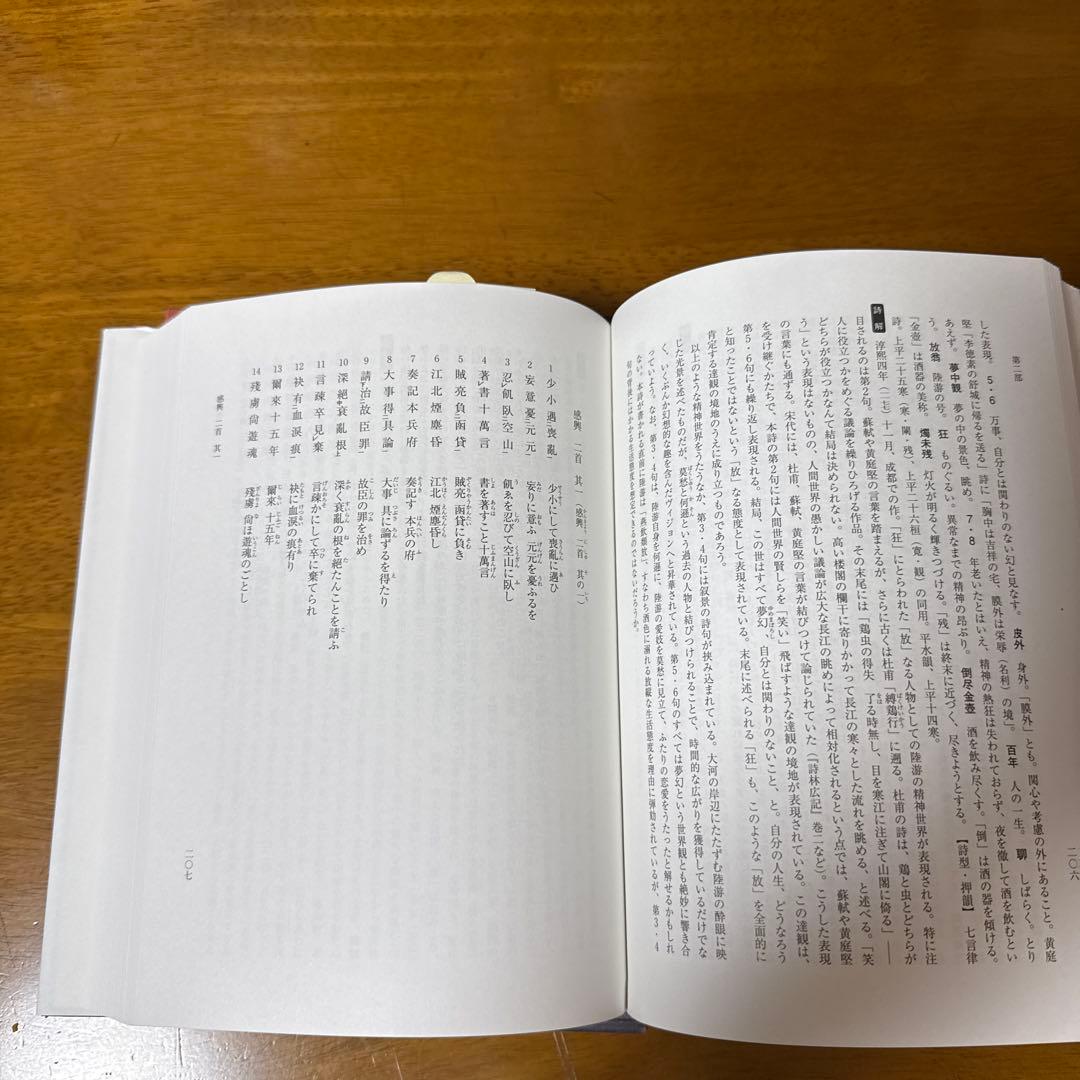 第二部
した表現。 5・6 万事、自分とは関わりのない幻と見なす。 皮外 身外。「膜外」とも。関心や考慮の外にあること。黄庭
堅「李徳素の舒城に帰るを送る」詩に「胸中は吉祥の宅、膜外は栄辱（名利）の境」。 百年 人の一生。 聊 しばらく。とり
あえず。 夢中観 夢の中の景色、眺め。 7・8 年老いたとはいえ、精神の熱狂は失われておらず、夜を徹して酒を飲むとい
う。 放翁 陸游の号。 狂 ものぐるい。異常なまでの精神の昂ぶり。 倒尽金壺 酒を飲み尽くす。「倒」は酒の器を傾ける。
「金壺」は酒器の美称。 燭未残 灯火が明るく輝きつづける。「残」は終末に近づく、尽きようとする。 【詩型・押韻】 七言律
詩。上平二十五寒（寒、闌、残）、上平二十六桓（寛・観）の同用。平水韻、上平十四寒。
詩解 淳熙四年（一一七七）十一月、成都での作。「狂」にとらわれた「放」なる人物としての陸游の精神世界が表現される。特に注
目されるのは第2句。蘇軾や黄庭堅の言葉を踏まえるが、さらに古くは杜甫「縛鶏行」に遡る。杜甫の詩は、鶏と虫とどちらが
人に役立つかをめぐる議論を繰りひろげる作品。その末尾には「鶏虫の得失 了る時無し、目を寒江に注ぎて山閣に倚る」――
どちらが役立つかなんて結局は決められない。高い楼閣の欄干に寄りかかって長江の寒々とした流れを眺める、と述べる。「笑
う」という表現はないものの、人間世界の愚かしい議論が広大な長江の眺めによって相対化されるという点では、蘇軾や黄庭堅
の言葉にも通ずる。宋代には、杜甫、蘇軾、黄庭堅の言葉が結びつけて論じられていた（『詩林広記』巻二など）。こうした表現
を受け継ぐかたちで、本詩の第2句には人間世界の賢しらを「笑い」飛ばすような達観の境地が表現されている。この達観は、
第5・6句にも繰り返し表現される。結局、この世はすべて夢幻、自分とは関わりのないこと、と。自分の人生、どうなろう
と知ったことではないという「放」なる態度として表現されている。末尾に述べられる「狂」も、このような「放」を全面的に
肯定する達観の境地のうえに成り立つものであろう。
以上のような精神世界をうたうなか、第3・4句には叙景の詩句が挟み込まれている。大河の岸辺にたたずむ陸游の酔眼に映
じた光景を述べたものだが、莫愁と何遜という過去の人物と結びつけられることで、時間的な広がりを獲得しているだけでな
く、いくぶんか幻想的な趣を含んだヴィジョンへと昇華されている。第5・6句のすべては夢幻という世界観とも絶妙に響き合
っていよう。なお、第3・4句は、陸游自身を何遜に、陸游の愛妓を莫愁に見立て、ふたりの恋愛をうたったと解せるかもしれ
ない。本詩が書かれる直前に陸游は「燕飲頽放」、すなわち酒色に溺れる放縦な生活態度を理由に弾劾されているが、第3・4
句の背後にはかかる生活態度を想定できるのではないだろうか。
二〇六
感興 二首 其一（感興 二首 其の一）
1 少小遇喪亂 少小にして喪亂に遇ひ
2 妄意憂元元 妄りに意ふ 元元を憂ふるを
3 忍飢臥空山 飢ゑを忍びて空山に臥し
4 著書十萬言 書を著すこと十萬言
5 賊亮負函貸 賊亮 函貸に負き
6 江北煙塵昏 江北 煙塵昏し
7 奏記本兵府 奏記す 本兵の府
8 大事得具論 大事 具に論ずるを得たり
9 請治故臣罪 故臣の罪を治め
10 深絕衰亂根 深く衰亂の根を絕たんことを請ふ
11 言疎卒見棄 言疎かにして卒に棄てられ
12 袂有血淚痕 袂に血淚の痕有り
13 爾來十五年 爾來 十五年
14 殘虜尙遊魂 殘虜 尙ほ遊魂のごとし
感興 二首 其一
二〇七